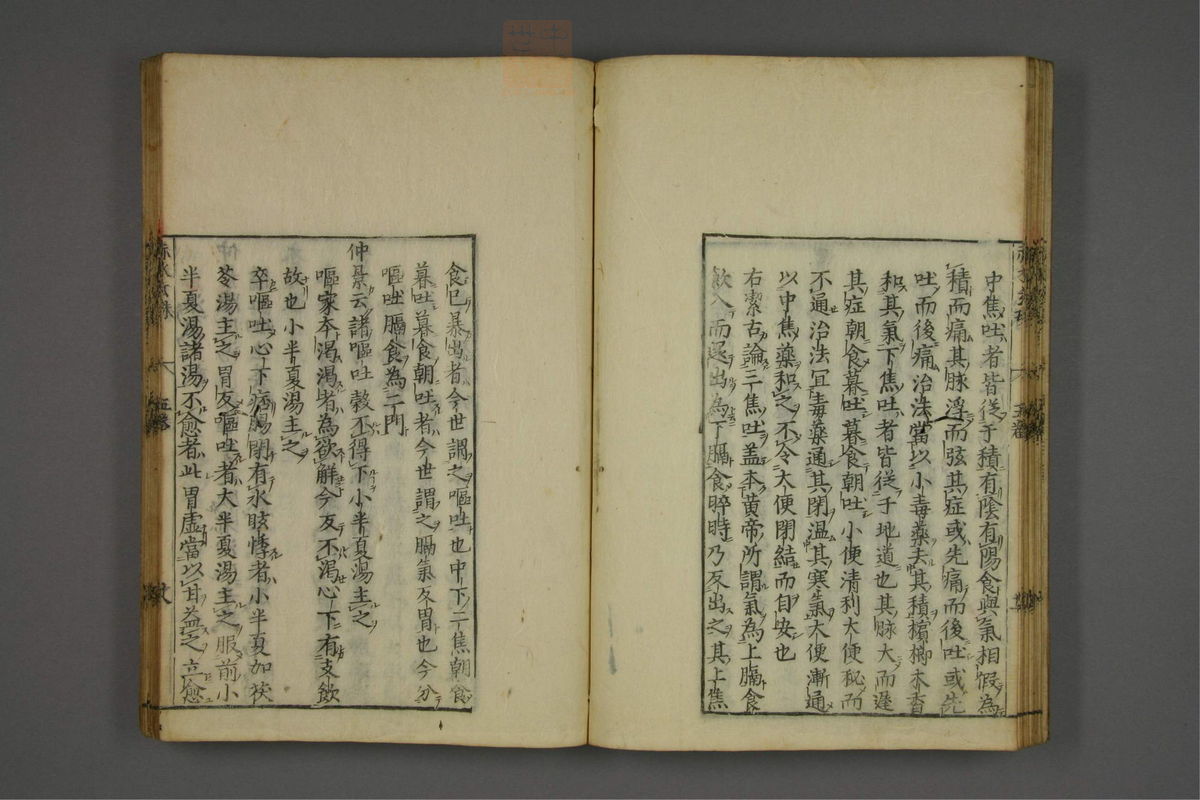 中焦吐者皆從于積有陰有陽食與氣相假為
積而痛其脉浮而弦其症或先痛而後吐或先
吐而後痛治法當以小毒藥去其積檳榔木香
和其氣下焦吐者皆從于地道也其脉大而遲
其症朝食暮吐暮食朝吐小便清利大便秘而
不通治法宜毒藥通其閉溫其寒氣大便漸通
以中焦藥和之不令大便閉結而自安也
右潔古論三焦吐盖本黃帝所謂氣為上膈食
飲入而還出為下膈食晬時乃反出之其上焦
食已暴出者今世謂之嘔吐也中下二焦朝食
暮吐暮食朝吐者今世謂之膈氣反胃也今分
嘔吐膈食為二門
仲景云諸嘔吐穀不得下小半夏湯主之
嘔家本渴渴者為欲解今反不渴心下有支飲
故也小半夏湯主之
卒嘔吐心下痞膈間有水眩悸者小半夏加茯
苓湯主之胃反嘔吐者大半夏湯主之服前小
半夏湯諸湯不愈者此胃虛當以甘益之立愈